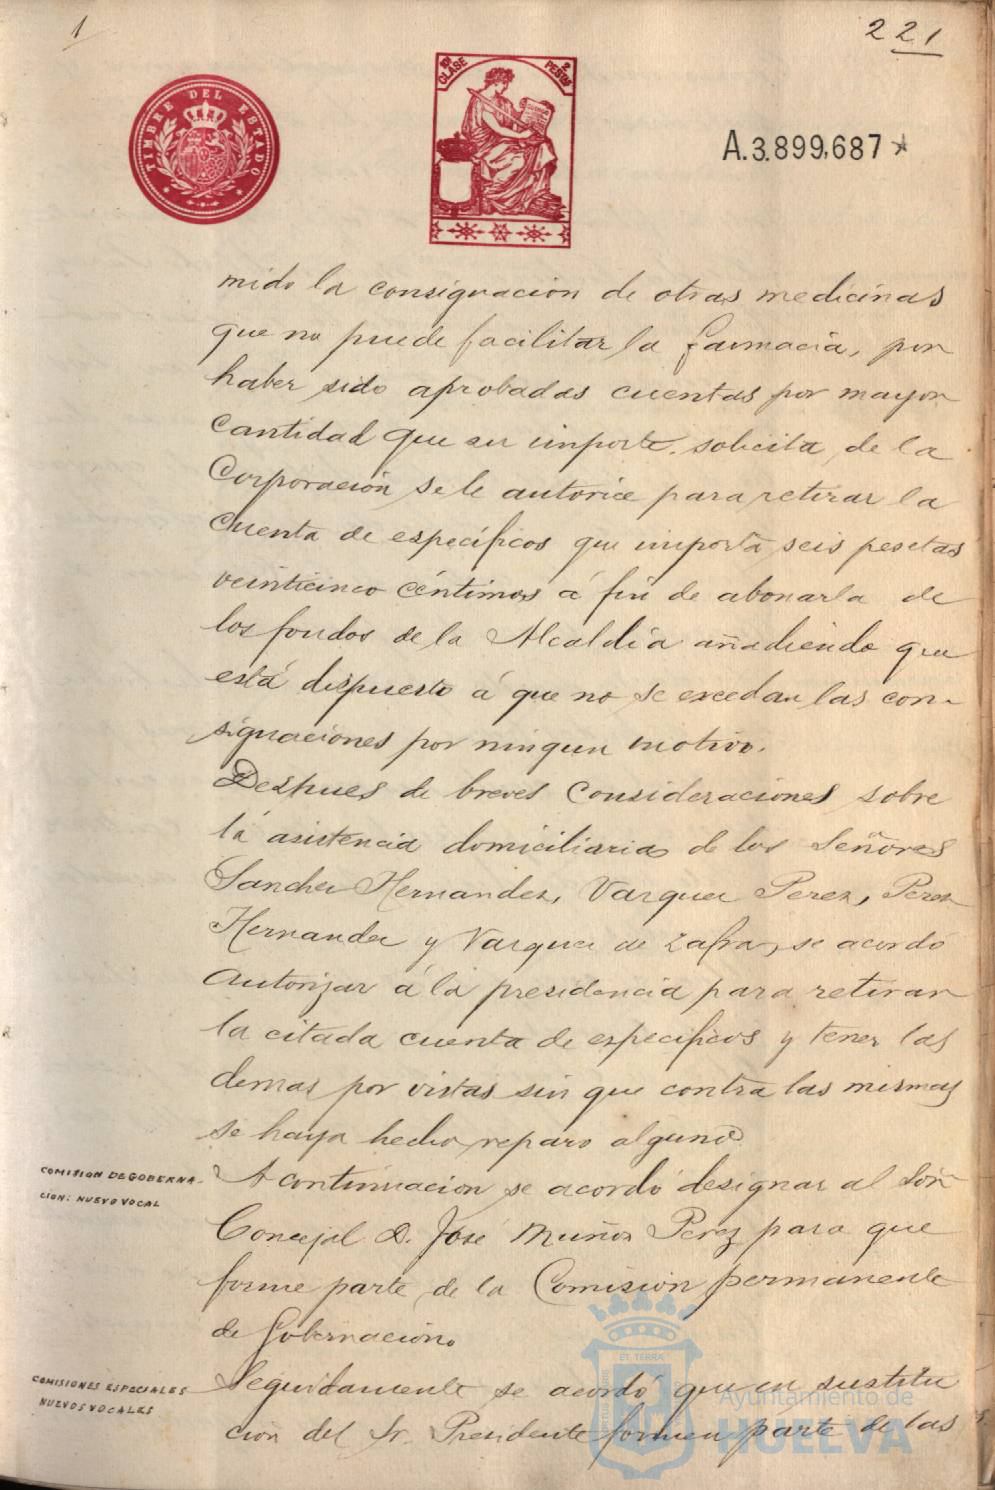 1
221
TIMBRE DEL ESTADO
10ª CLASE
2 PESETAS
A.3.899,687
mido la consignacion de otras medicinas
que no puede facilitar la farmacia, por
haber sido aprobadas cuentas por mayor
cantidad que su importe. solicita de la
Corporación se le autorice para retirar la
cuenta de específicos que importa seis pesetas
veinticinco céntimos á fin de abonarla de
los fondos de la Alcaldía añadiendo que
está dispuesto á que no se excedan las con-
signaciones por ningun motivo.
Despues de breves consideraciones sobre
lá asistencia domiciliaria de los Señores
Sanchez Hernandez, Vazquez Perez, Perez
Hernandez y Vazquez de Zafra, se acordó
autorizar á lá presidencia para retirar
la citada cuenta de especificos y tener las
demas por vistas sin que contra las mismas
se haya hecho reparo alguno.
COMISION DE GOBERNA-
CION: NUEVO VOCAL
A continuacion se acordó designar al Sôr
Concejal D. José Muñoz Perez para que
forme parte de la Comisión permanente
de Gobernacion.
COMISIONES ESPECIALES
NUEVOS VOCALES
Seguidamente se acordó que en sustitu
ción del Sr. Presidente formen parte de las
ET TERRA
Ayuntamiento de
HUELVA